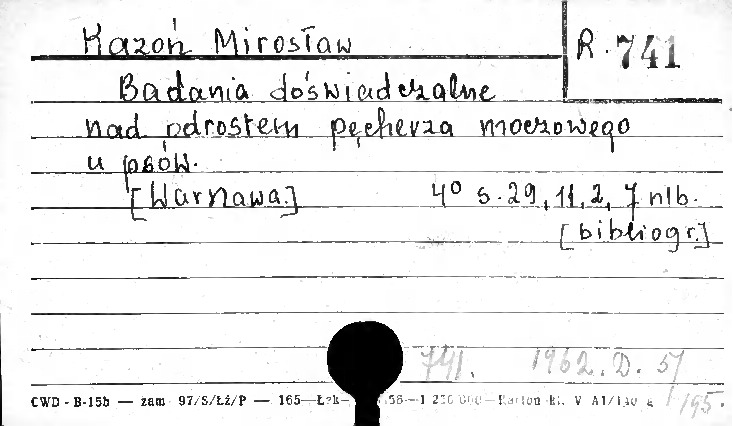 Kazoń Mirosław
R. 741
Badania doświadczalne
nad odrostem pęcherza moczowego
u psów.
[Warnawa.] 4° s. 29, 11, 2, 7 nlb.
[bibliogr.]
741. 1962. D. 51
CWD - B-15b — zam 97/S/Łź/P — 165—Łzk— 58—1 250 000—Karton kl. V A1/130 g
195.